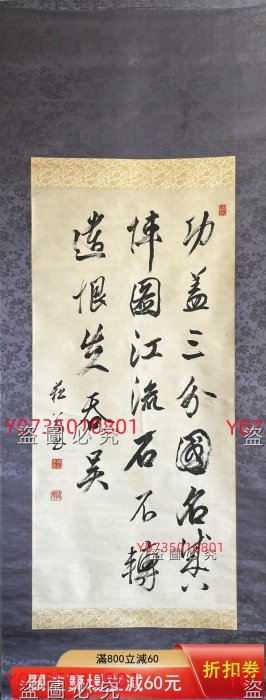 功蓋三分國名成八
陣圖江流石不轉
遺恨失吞吳
Y0735010801
盜圖必究
Y0735010801
盜圖必究
滿800立減60
立減60元
折扣券